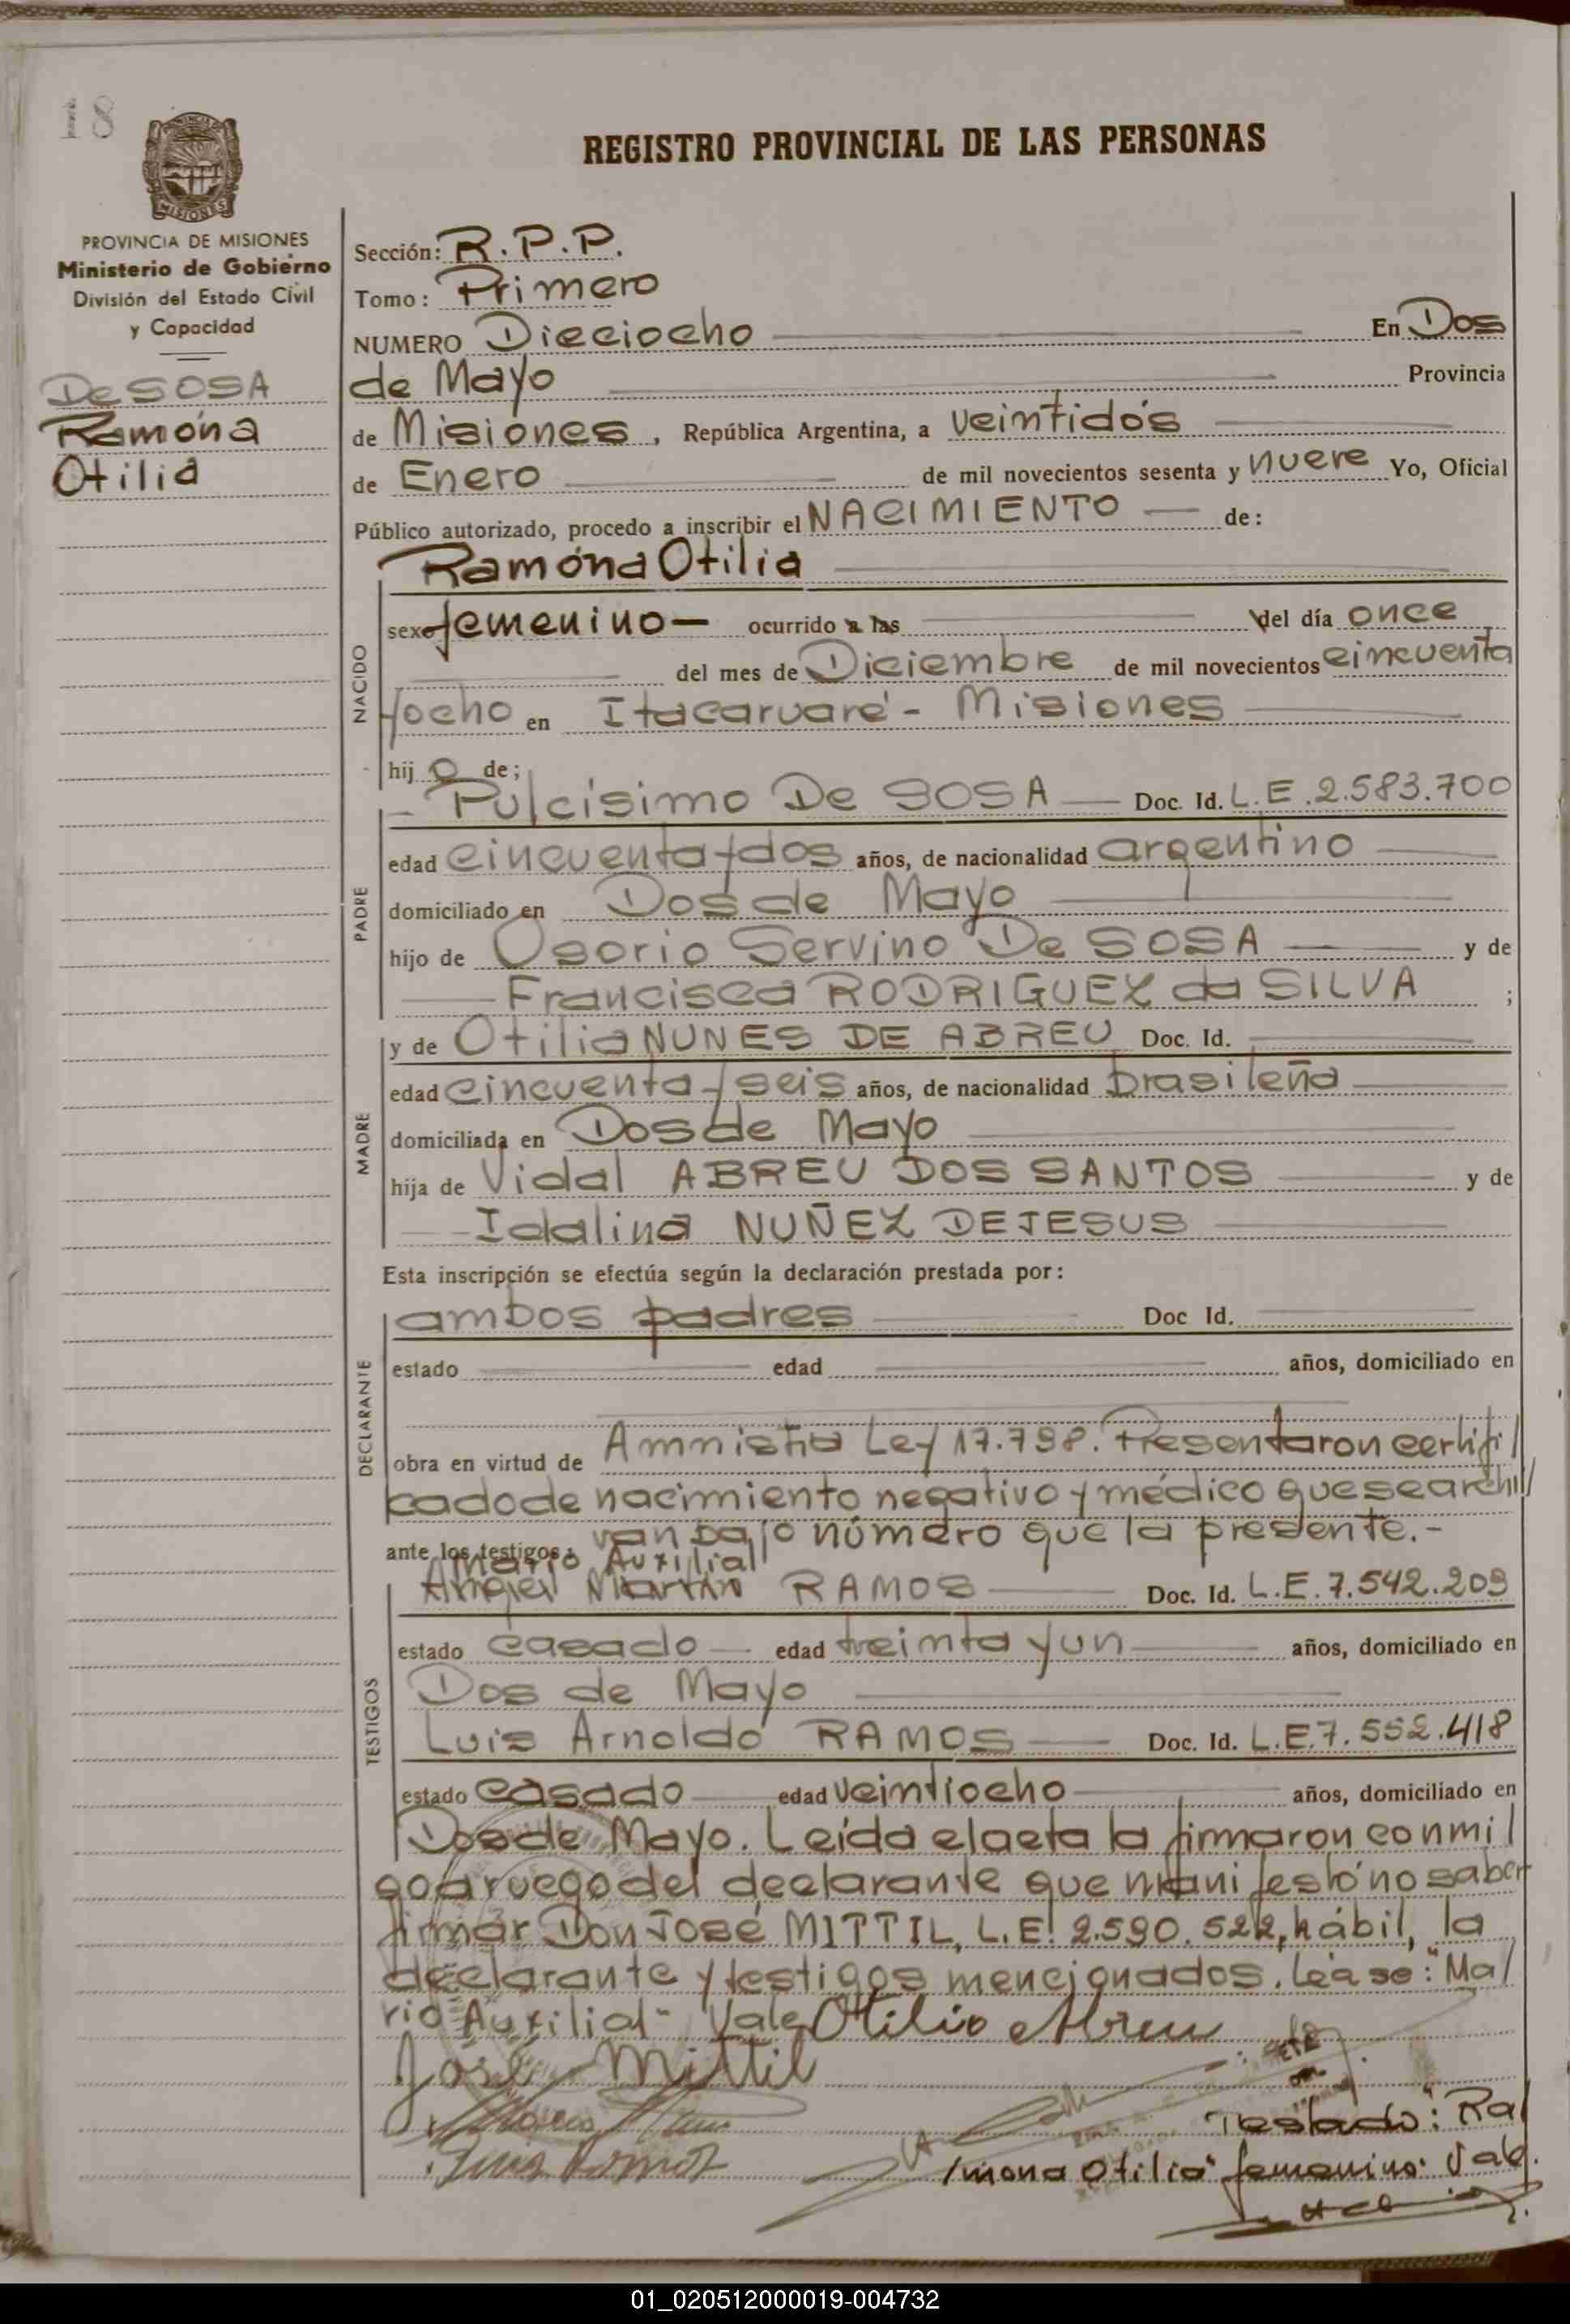 18
PROVINCIA DE MISIONES
Ministerio de Gobierno
División del Estado Civil
y Capacidad
De SOSA
Ramóna
Otilia
REGISTRO PROVINCIAL DE LAS PERSONAS
Sección: R.P.P.
Tomo: Primero
NUMERO Dieciocho En Dos
de Mayo Provincia
de Misiones, República Argentina, a veintidós
de Enero de mil novecientos sesenta y nueve Yo, Oficial
Público autorizado, procedo a inscribir el NACIMIENTO de:
Ramóna Otilia
NACIDO
sexo femenino ocurrido a las del día once
del mes de Diciembre de mil novecientos cincuenta
y ocho en Itacaruaré - Misiones
hij o de;
Pulcísimo De SOSA Doc. Id. L.E. 2.583.700
PADRE
edad cincuenta y dos años, de nacionalidad argentino
domiciliado en Dos de Mayo
hijo de Osorio Servino De SOSA y de
Francisca RODRIGUEZ da SILVA ;
y de Otilia NUNES DE ABREU Doc. Id.
MADRE
edad cincuenta y seis años, de nacionalidad brasileña
domiciliada en Dos de Mayo
hija de Vidal ABREU DOS SANTOS y de
Idalina NUÑEZ DE JESUS
Esta inscripción se efectúa según la declaración prestada por:
ambos padres Doc Id.
DECLARANTE
estado edad años, domiciliado en
obra en virtud de Amnistia Ley 17.798. Presentaron certifi/
cado de nacimiento negativo y médico que se archi//
van bajo número que la presente.-
ante los testigos: Mario Auxilial
Angel Martin RAMOS Doc. Id. L.E. 7.542.209
TESTIGOS
estado casado edad treinta y un años, domiciliado en
Dos de Mayo
Luis Arnoldo RAMOS Doc. Id. L.E. 7.552.418
estado casado edad veintiocho años, domiciliado en
Dos de Mayo. Leída el acta la firmaron conmi/
go a ruego del declarante que manifestó no saber
firmar Don José MITTIL, L.E. 2.590.522, hábil, la
declarante y testigos mencionados. Léase: "Ma/
rio Auxilial" Vale Otilia Abreu
José Mittil
Testado: "Ra/
mona Otilia" femenino: Vale.
01_020512000019-004732